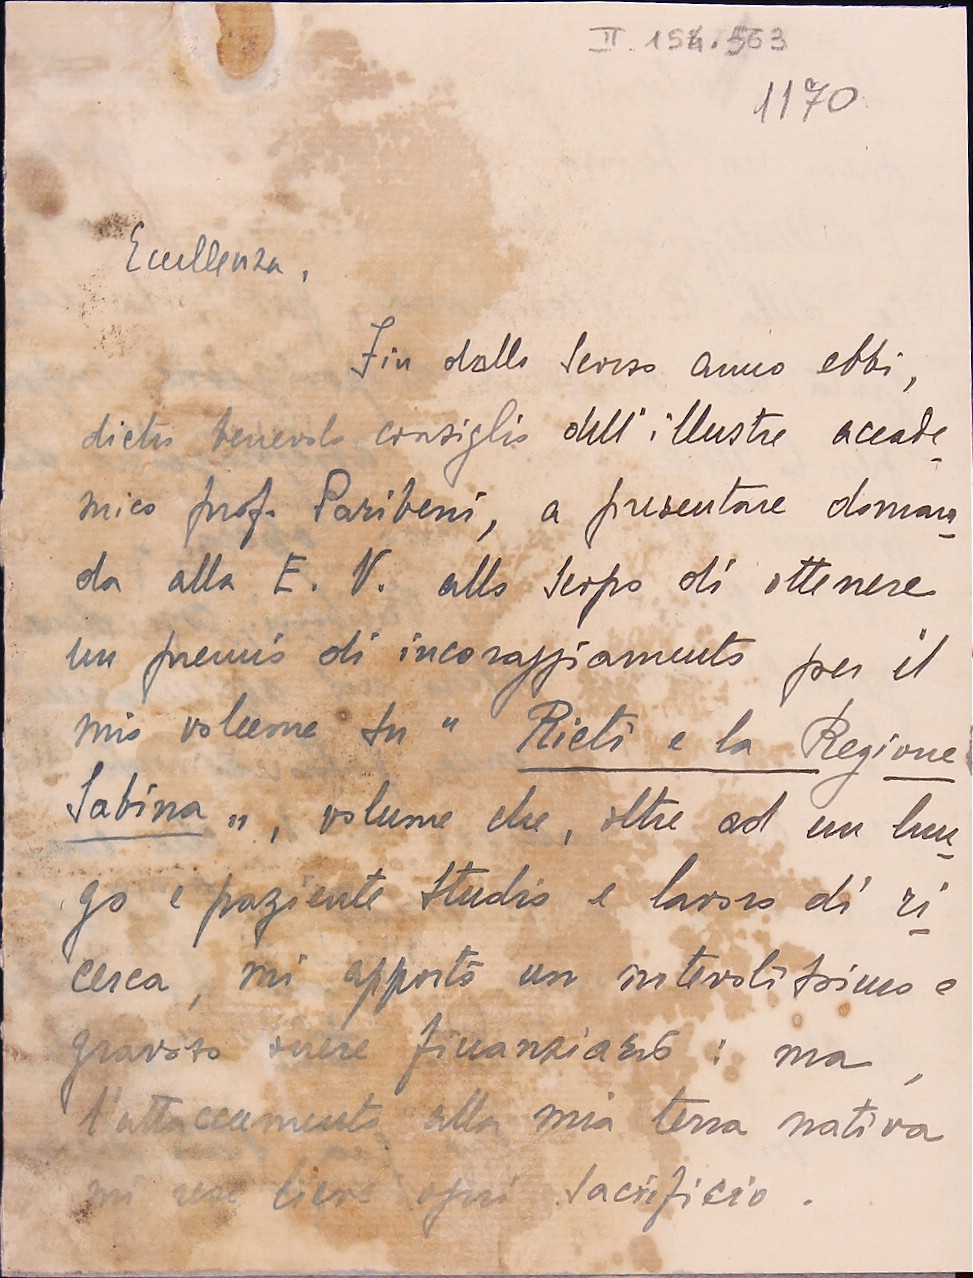 II. 154.563
1170
Eccellenza,
Fin dallo scorso anno ebbi,
dietro benevolo consiglio dell'illustre accade-
mico prof. Paribeni, a presentare doman-
da alla E. V. allo scopo di ottenere
un premio di incoraggiamento per il
mio volume su " Rieti e la Regione
Sabina ", volume che, oltre ad un lun-
go e paziente studio e lavoro di ri-
cerca, mi apportò un notevolissimo e
gravoso onere finanziario : ma,
l'attaccamento alla mia terra nativa
mi rese lieve ogni sacrificio.